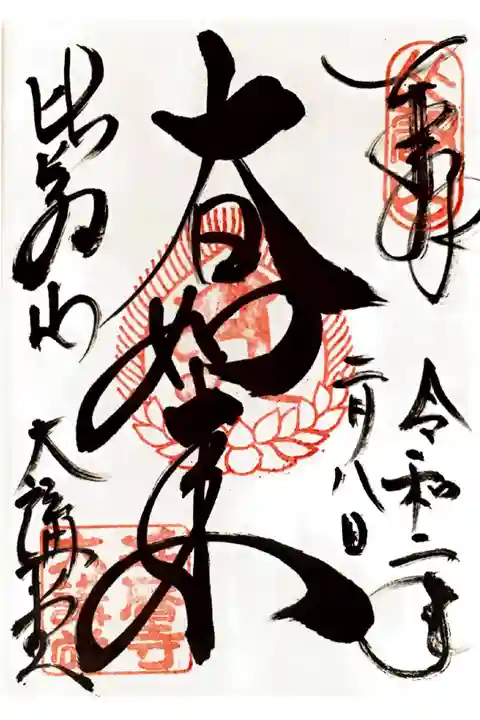 奉拝
令和二年
二月八日
大日如来
比叡山
大講堂